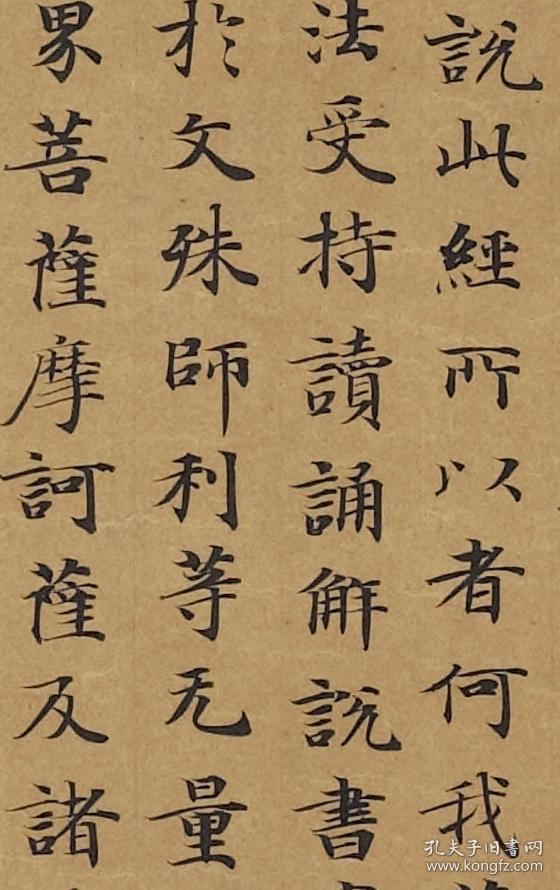 説此經所以者何我
法受持讀誦解説書
於文殊師利等无量
界菩薩摩訶薩及諸
孔夫子旧书网
www.kongfz.com